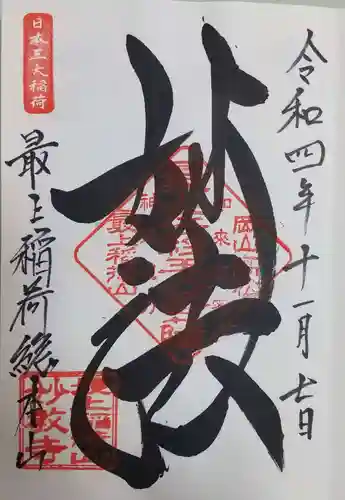 令和四年十一月七日
妙法
日本三大稲荷
最上稲荷総本山
最上稲荷山
妙教寺